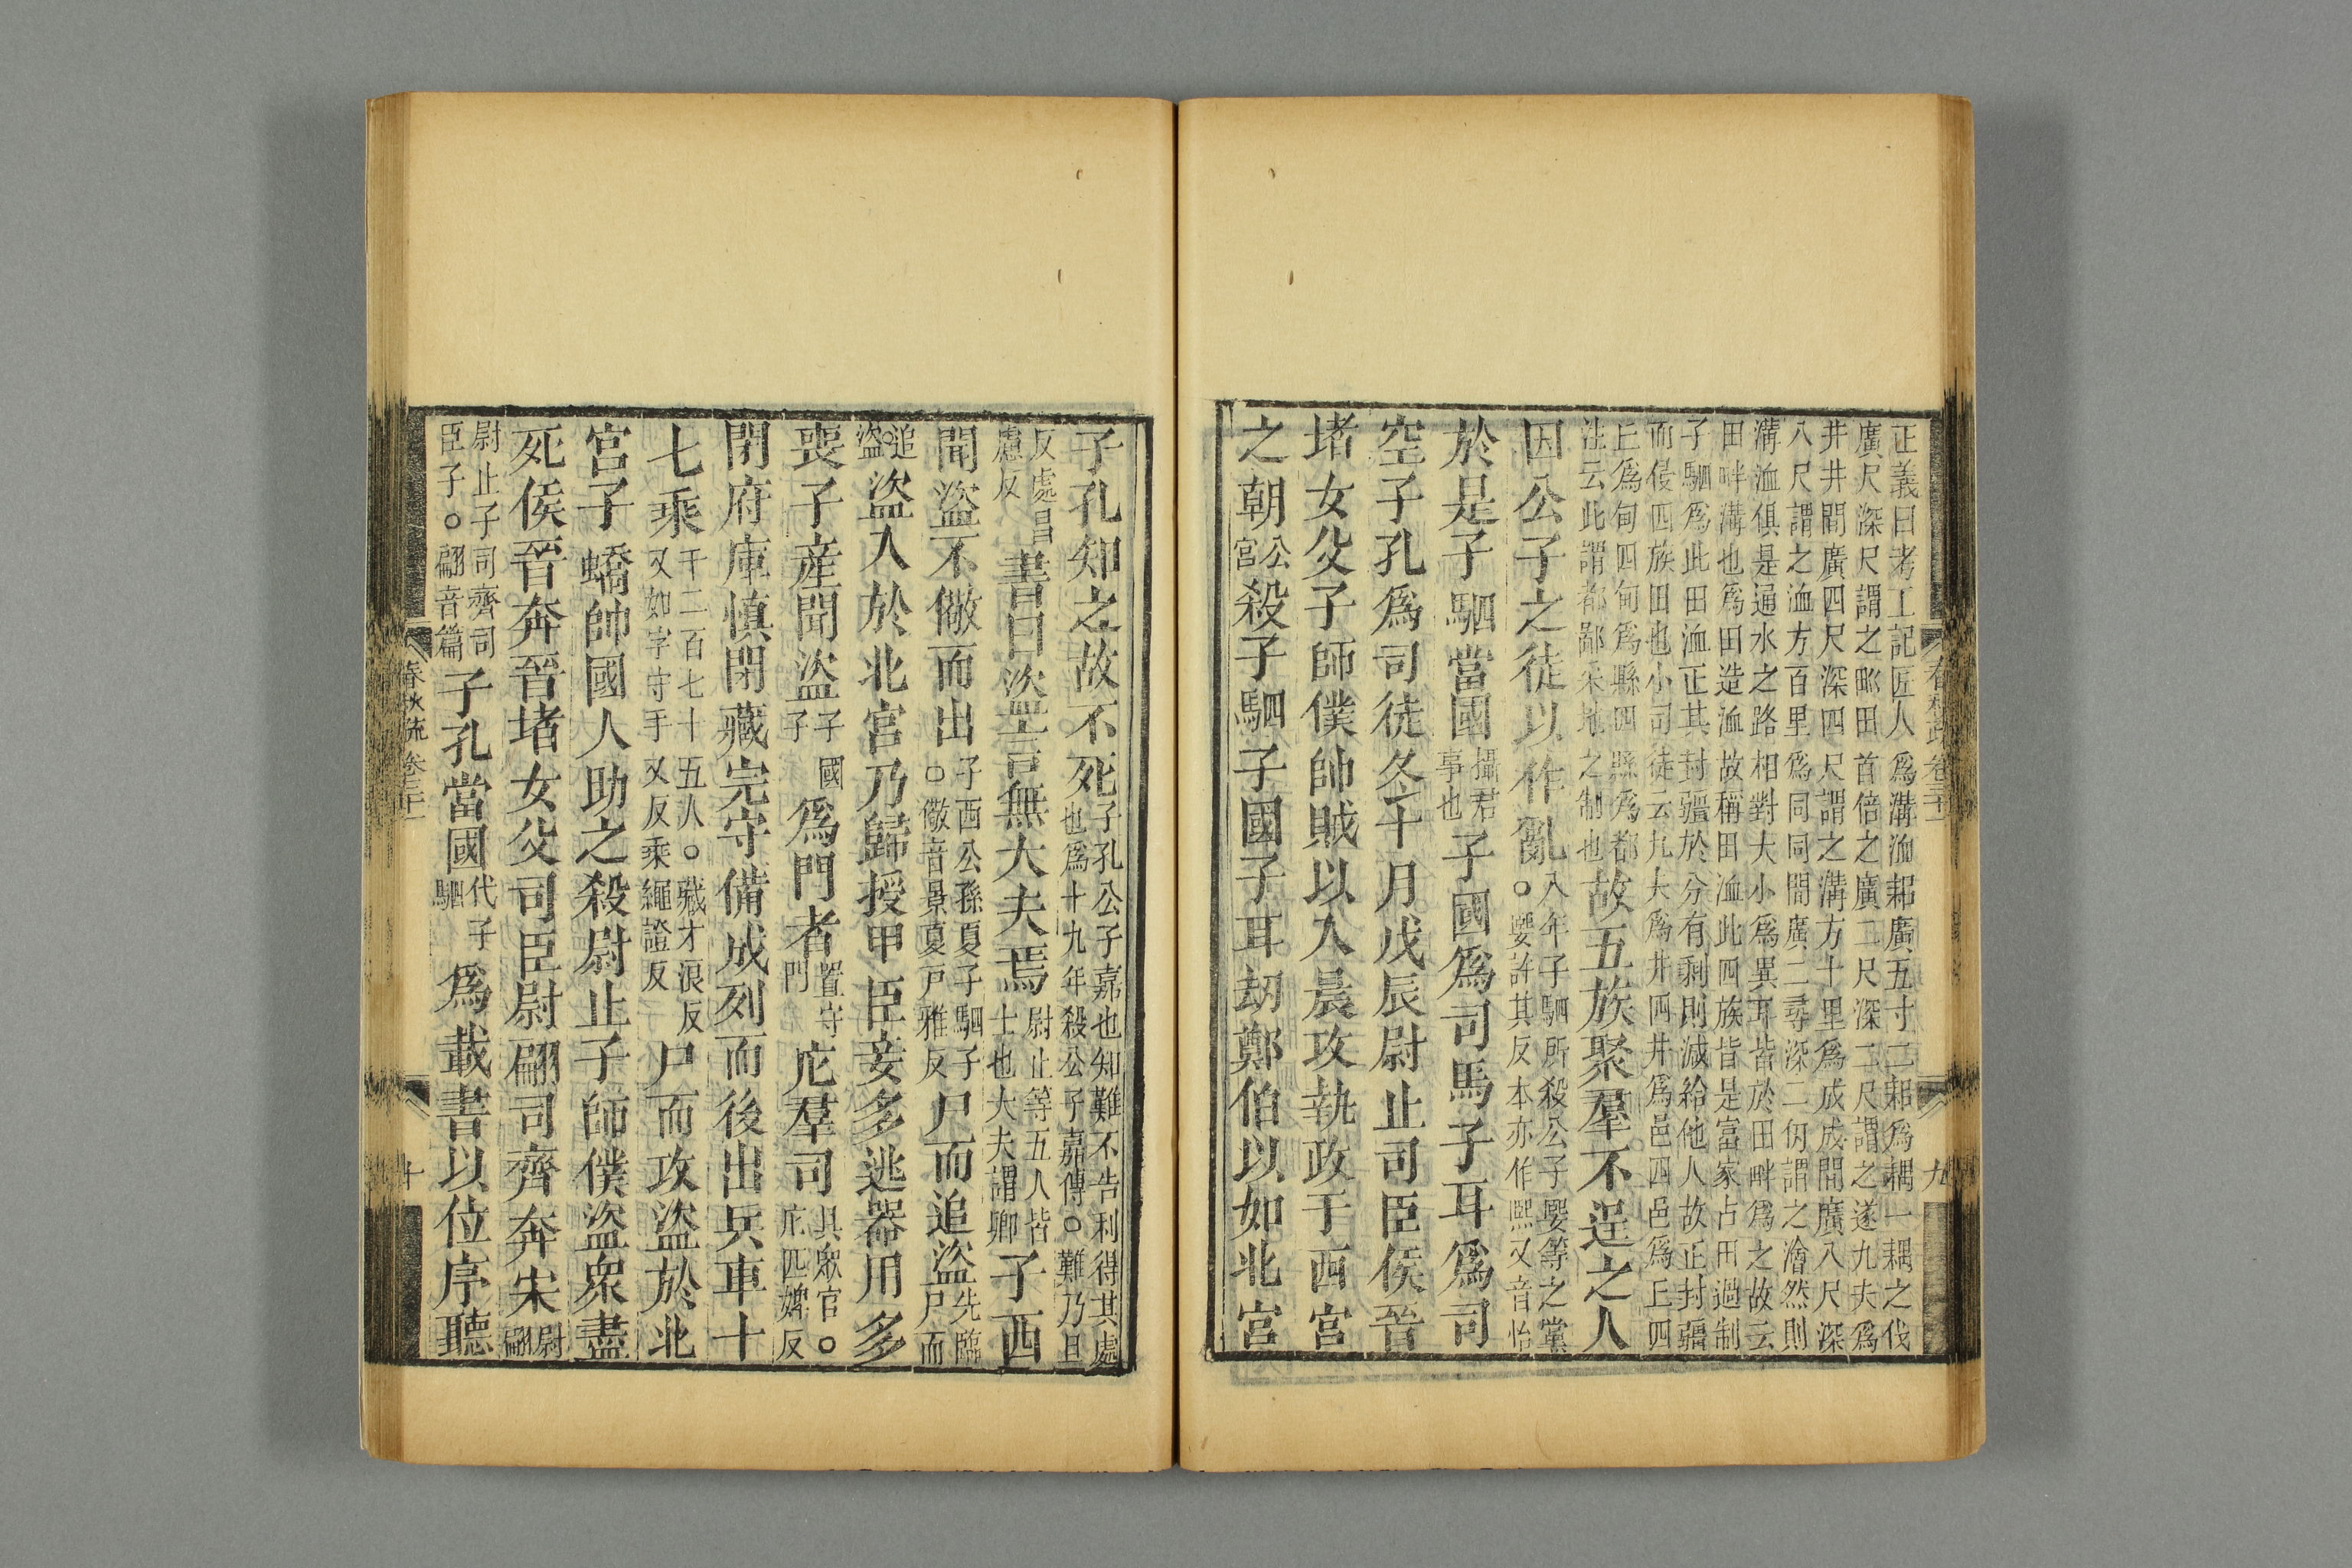 正義曰考工記匠人爲溝洫耜廣五寸二耜爲耦一耦之伐
廣尺深尺謂之𤰕田首倍之廣二尺深二尺謂之遂九夫爲
井井間廣四尺深四尺謂之溝方十里爲成成間廣八尺深
八尺謂之洫方百里爲同同間廣二尋深二仞謂之澮然則
溝洫俱是通水之路相對大小爲異耳皆於田畔爲之故云
田畔溝也爲田造洫故稱田洫此四族皆是富家占田過制
子駟爲此田洫正其封疆於分有剩則減給他人故正封疆
而侵四族田也小司徒云九夫爲井四井爲邑四邑爲丘四
丘爲甸四甸爲縣四縣爲都
注云此謂都鄙采地之制也
故五族聚羣不逞之人
因公子之徒以作亂
八年子駟所殺公子嬰等之黨
○嬰許其反本亦作熙又音怡
於是子駟當國
攝君
事也
子國爲司馬子耳爲司
空子孔爲司徒冬十月戊辰尉止司臣侯晉
堵女父子師僕帥賊以入晨攻執政于西宮
之朝
公
宮
殺子駟子國子耳劫鄭伯以如北宮
春秋疏卷三十一
九
子孔知之故不死
子孔公子嘉也知難不告利得其處
也爲十九年殺公子嘉傳○難乃旦
反處昌
慮反
書曰盜言無大夫焉
尉止等五人皆
士也大夫謂卿
子西
聞盜不儆而出
子西公孫夏子駟子
○儆音景夏戸雅反
尸而追盜
先臨
尸而
追
盜
盜入於北宮乃歸授甲臣妾多逃器用多
喪子産聞盜
子國
子
爲門者
置守
門
庀羣司
具衆官○
庀匹婢反
閉府庫慎閉藏完守備成列而後出兵車十
七乘
千二百七十五人○藏才浪反
又如字守手又反乘繩證反
尸而攻盜於北
宮子蟜帥國人助之殺尉止子師僕盜衆盡
死侯晉奔晉堵女父司臣尉翩司齊奔宋
尉
翩
尉止子司齊司
臣子○翩音篇
子孔當國
代子
駟
爲載書以位序聽
春秋疏卷三十一
十